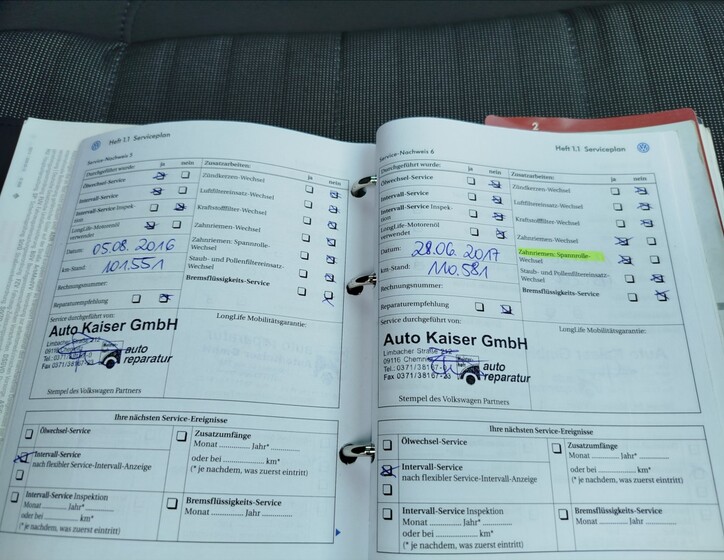 Heft 1.1 Serviceplan
Service-Nachweis 5
Durchgeführt wurde: ja nein
Ölwechsel-Service
Intervall-Service
Intervall-Service Inspektion
LongLife-Motorenöl
verwendet
Datum: 05.08.2016
km-Stand: 101.551
Rechnungsnummer:
Reparaturempfehlung
Service durchgeführt von:
Auto Kaiser GmbH
Limbacher Straße 212
09116 Chemnitz
auto
reparatur
Stempel des Volkswagen Partners
Zusatzarbeiten: ja nein
Zündkerzen-Wechsel
Luftfiltereinsatz-Wechsel
Kraftstofffilter-Wechsel
Zahnriemen-Wechsel
Zahnriemen: Spannrolle-
Wechsel
Staub- und Pollenfiltereinsatz-
Wechsel
Bremsflüssigkeits-Service
LongLife Mobilitätsgarantie:
Ihre nächsten Service-Ereignisse
Ölwechsel-Service
Intervall-Service
nach flexibler Service-Intervall-Anzeige
Intervall-Service Inspektion
Monat ............ Jahr*............
oder bei ............ km*
(* je nachdem, was zuerst eintritt)
Zusatzumfänge
Monat ............ Jahr*............
oder bei ............ km*
(* je nachdem, was zuerst eintritt)
Bremsflüssigkeits-Service
Monat ............ Jahr ............
2
Heft 1.1 Serviceplan
Service-Nachweis 6
Durchgeführt wurde: ja nein
Ölwechsel-Service
Intervall-Service
Intervall-Service Inspek-
tion
LongLife-Motorenöl
verwendet
Datum: 28.06.2017
km-Stand: 110.581
Rechnungsnummer:
Reparaturempfehlung
Service durchgeführt von:
Auto Kaiser GmbH
Limbacher Straße 212
09116 Chemnitz
auto
reparatur
Stempel des Volkswagen Partners
Zusatzarbeiten: ja nein
Zündkerzen-Wechsel
Luftfiltereinsatz-Wechsel
Kraftstofffilter-Wechsel
Zahnriemen-Wechsel
Zahnriemen: Spannrolle-
Wechsel
Staub- und Pollenfiltereinsatz-
Wechsel
Bremsflüssigkeits-Service
LongLife Mobilitätsgarantie:
Ihre nächsten Service-Ereignisse
Ölwechsel-Service
Intervall-Service
nach flexibler Service-Intervall-Anzeige
Intervall-Service Inspektion
Monat ............ Jahr*............
oder bei ............ km*
(* je nachdem, was zuerst eintritt)
Zusatzumfänge
Monat ............ Jahr*............
oder bei ............ km*
(* je nachdem, was zuerst eintritt)
Bremsflüssigkeits-Service
Monat ............ Jahr ............